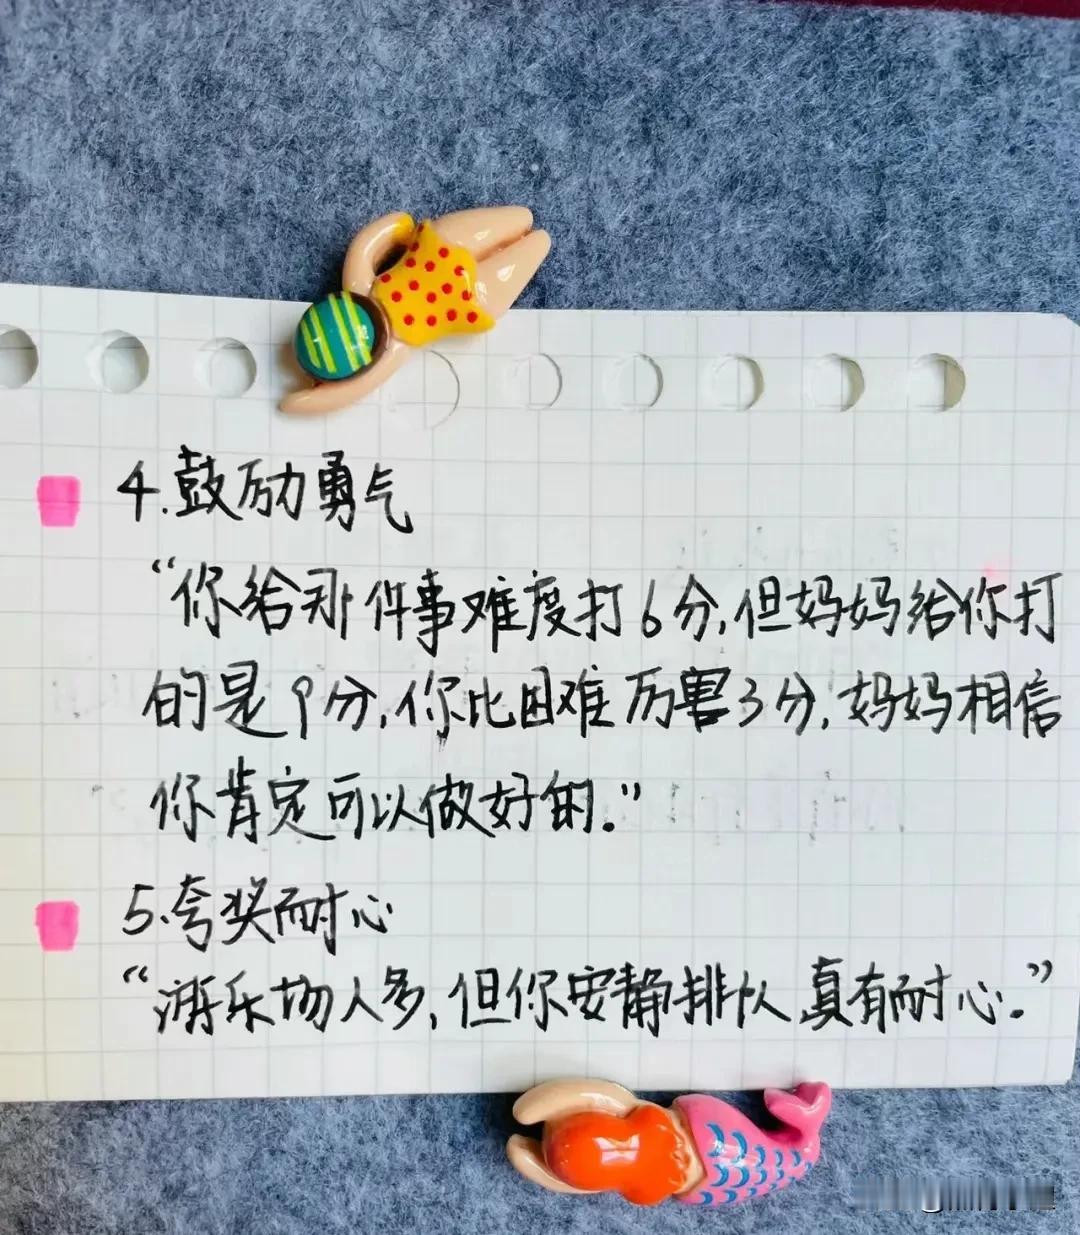 4.鼓励勇气
“你给那件事难度打6分,但妈妈给你打
的是9分,你比困难厉害3分,妈妈相信
你肯定可以做好的.”
5.夸奖耐心
“游乐场人多,但你安静排队真有耐心.”